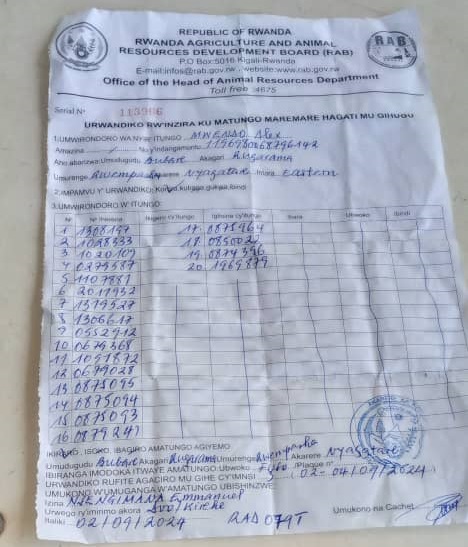 REPUBLIC OF RWANDA
RWANDA AGRICULTURE AND ANIMAL
RESOURCES DEVELOPMENT BOARD (RAB)
P.O Box:5016 Kigali-Rwanda
E-mail:infos@rab.gov.rw, website:www.rab.gov.rw
Office of the Head of Animal Resources Department
Toll free :4675
RAB
Serial No 113906
URWANDIKO RW'INZIRA KU MATUNGO MAREMARE HAGATI MU GIHUGU
1.UMWIRONDORO WA NYIR'ITUNGO : MWENDO Alex
Amazina No y'indangamuntu:
Aho abarizwa:Umudugudu Bubare Akagari Rugarama
Umurenge Rwempasha Akarere Nyagatare Intara Eastern
2.IMPAMVU Y' URWANDIKO:
3.UMWIRONDORO W' ITUNGO:
No No y'iherena Igitsina cy'itungo Ibara Ubwoko Ibindi
1 1308197 17 0875964
2 1028333 18
3 1020109 19 0874396
4 0279587 20 1969879
5 1107881
6 2017932
7 1379527
8
9 0552912
10 0679368
11 1091872
12 0679028
13 0875095
14 0875094
15 0875093
16
IKIRARO , ISOKO, IBAGIRO AMATUNGO AGIYEMO
Umudugudu Bubare Akagari Rugarama Umurenge Rwempasha Akarere Nyagatare
IBIRANGA IMODOKA ITWAYE AMATUNGO:Ubwoko Plaque no
URWANDIKO RUFITE AGACIRO MU GIHE CY'IMINSI 3 (02-04/09/2024)
UMUKONO W'UMUGANGA W'AMATUNGO UBISHINZWE:
Izina Emmanuel
Urwego ry'imirimo akora
Italiki 02/09/2024 RAD 079T
Umukono na Cachet